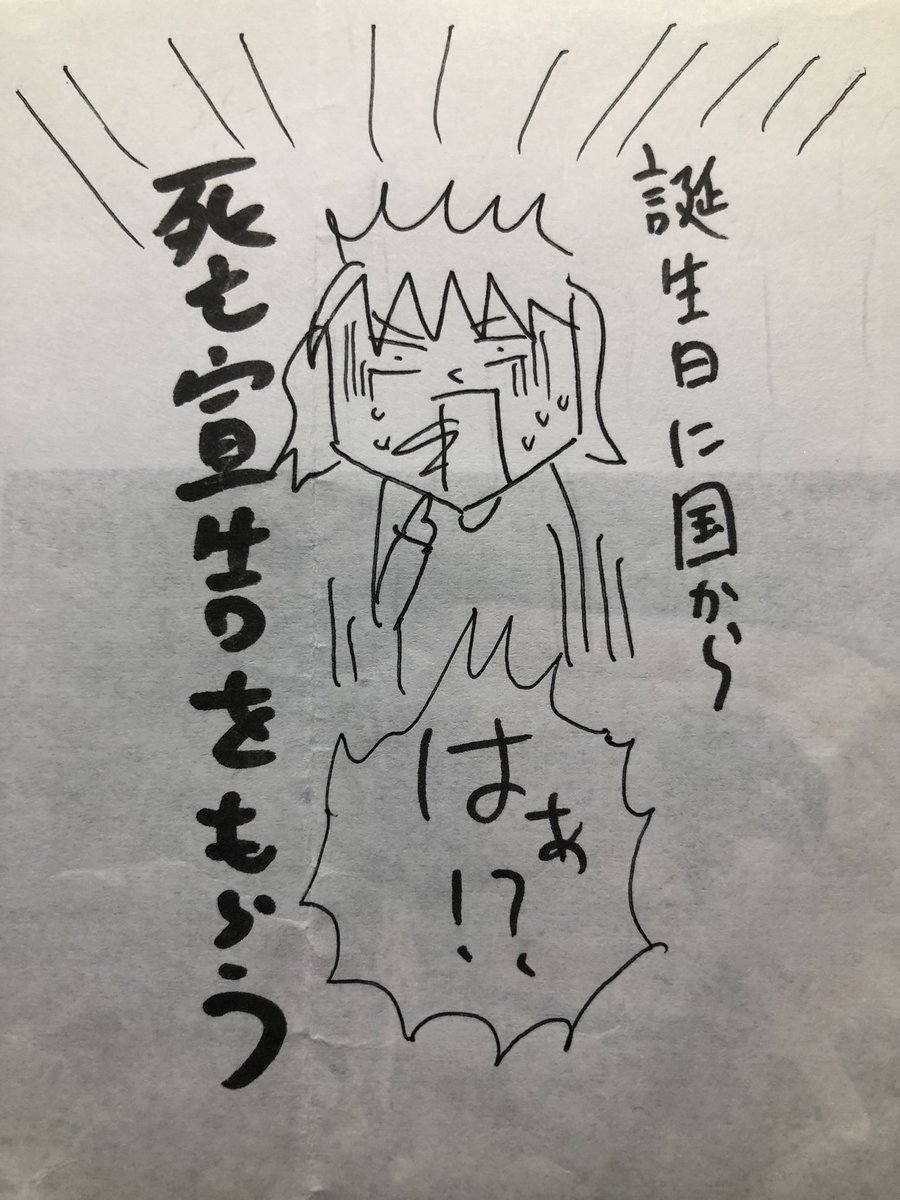 誕生日に国から
死亡宣告をもらう
はぁ
!?